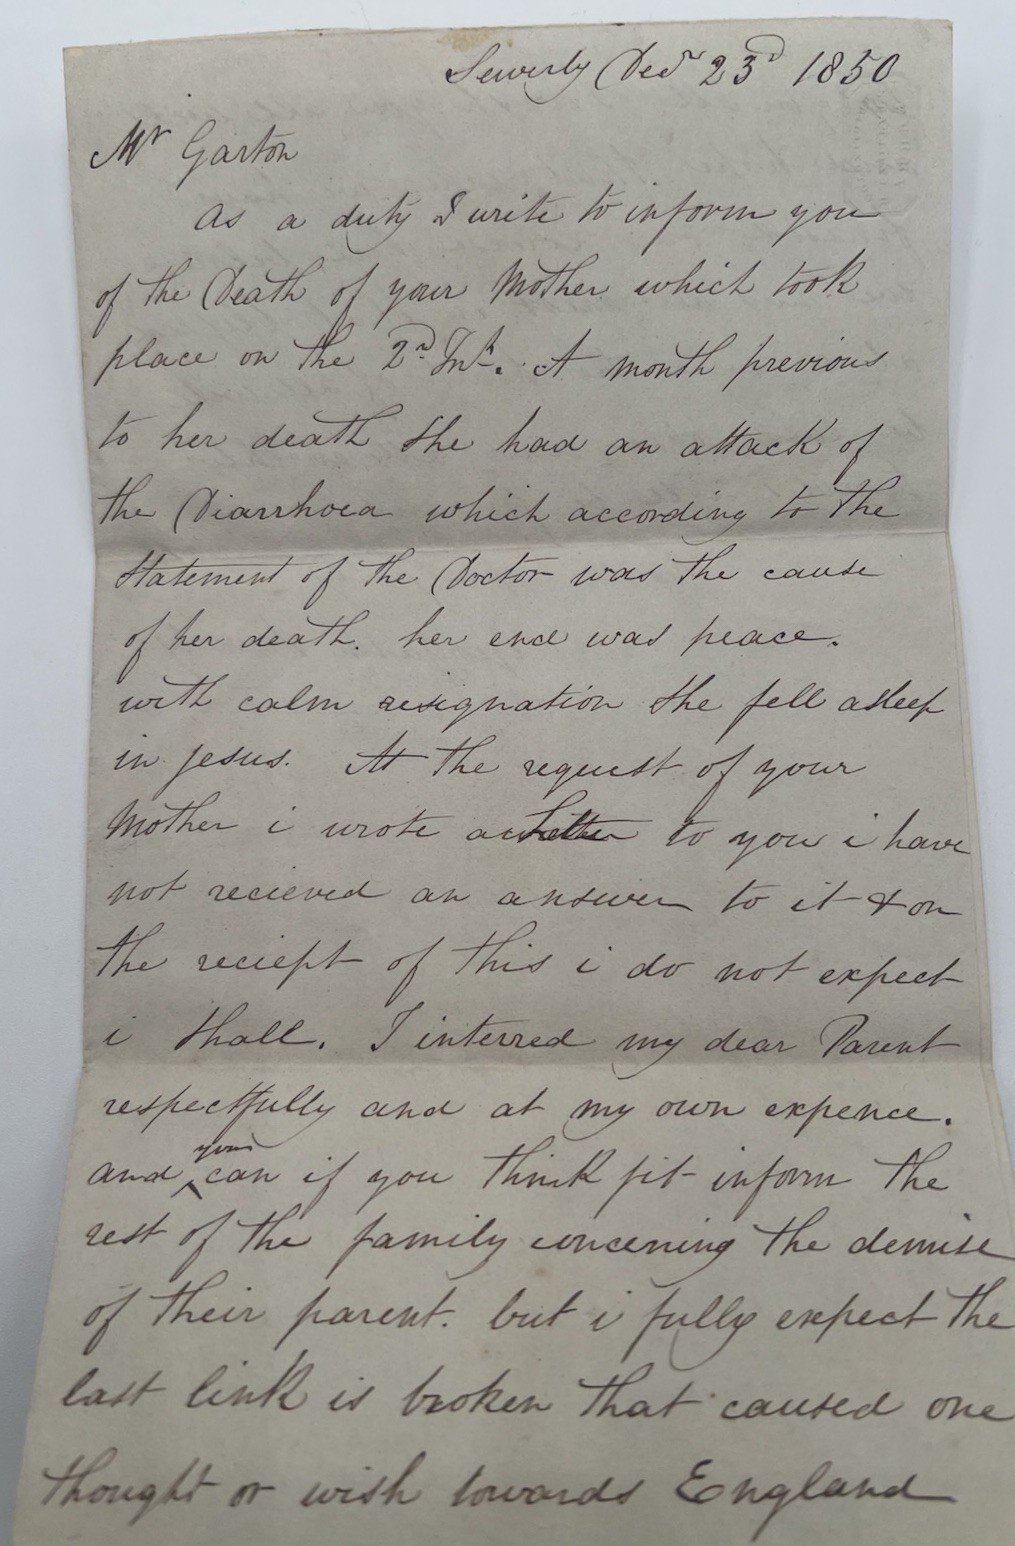 Sewerby Decr 23rd 1850
Mr Garton
As a duty I write to inform you
of the Death of your Mother which took
place on the 2nd Inst. A month previous
to her death she had an attack of
the Diarrhoea which according to the
statement of the Doctor was the cause
of her death. her end was peace.
with calm resignation she fell asleep
in Jesus. At the request of your
Mother i wrote a Letter to you i have
not recieved an answer to it & on
the reciept of this i do not expect
i shall. I interred my dear Parent
respectfully and at my own expence.
you
and can if you think fit inform the
rest of the family concerning the demise
of their parent. but i fully expect the
last link is broken that caused one
thought or wish towards England